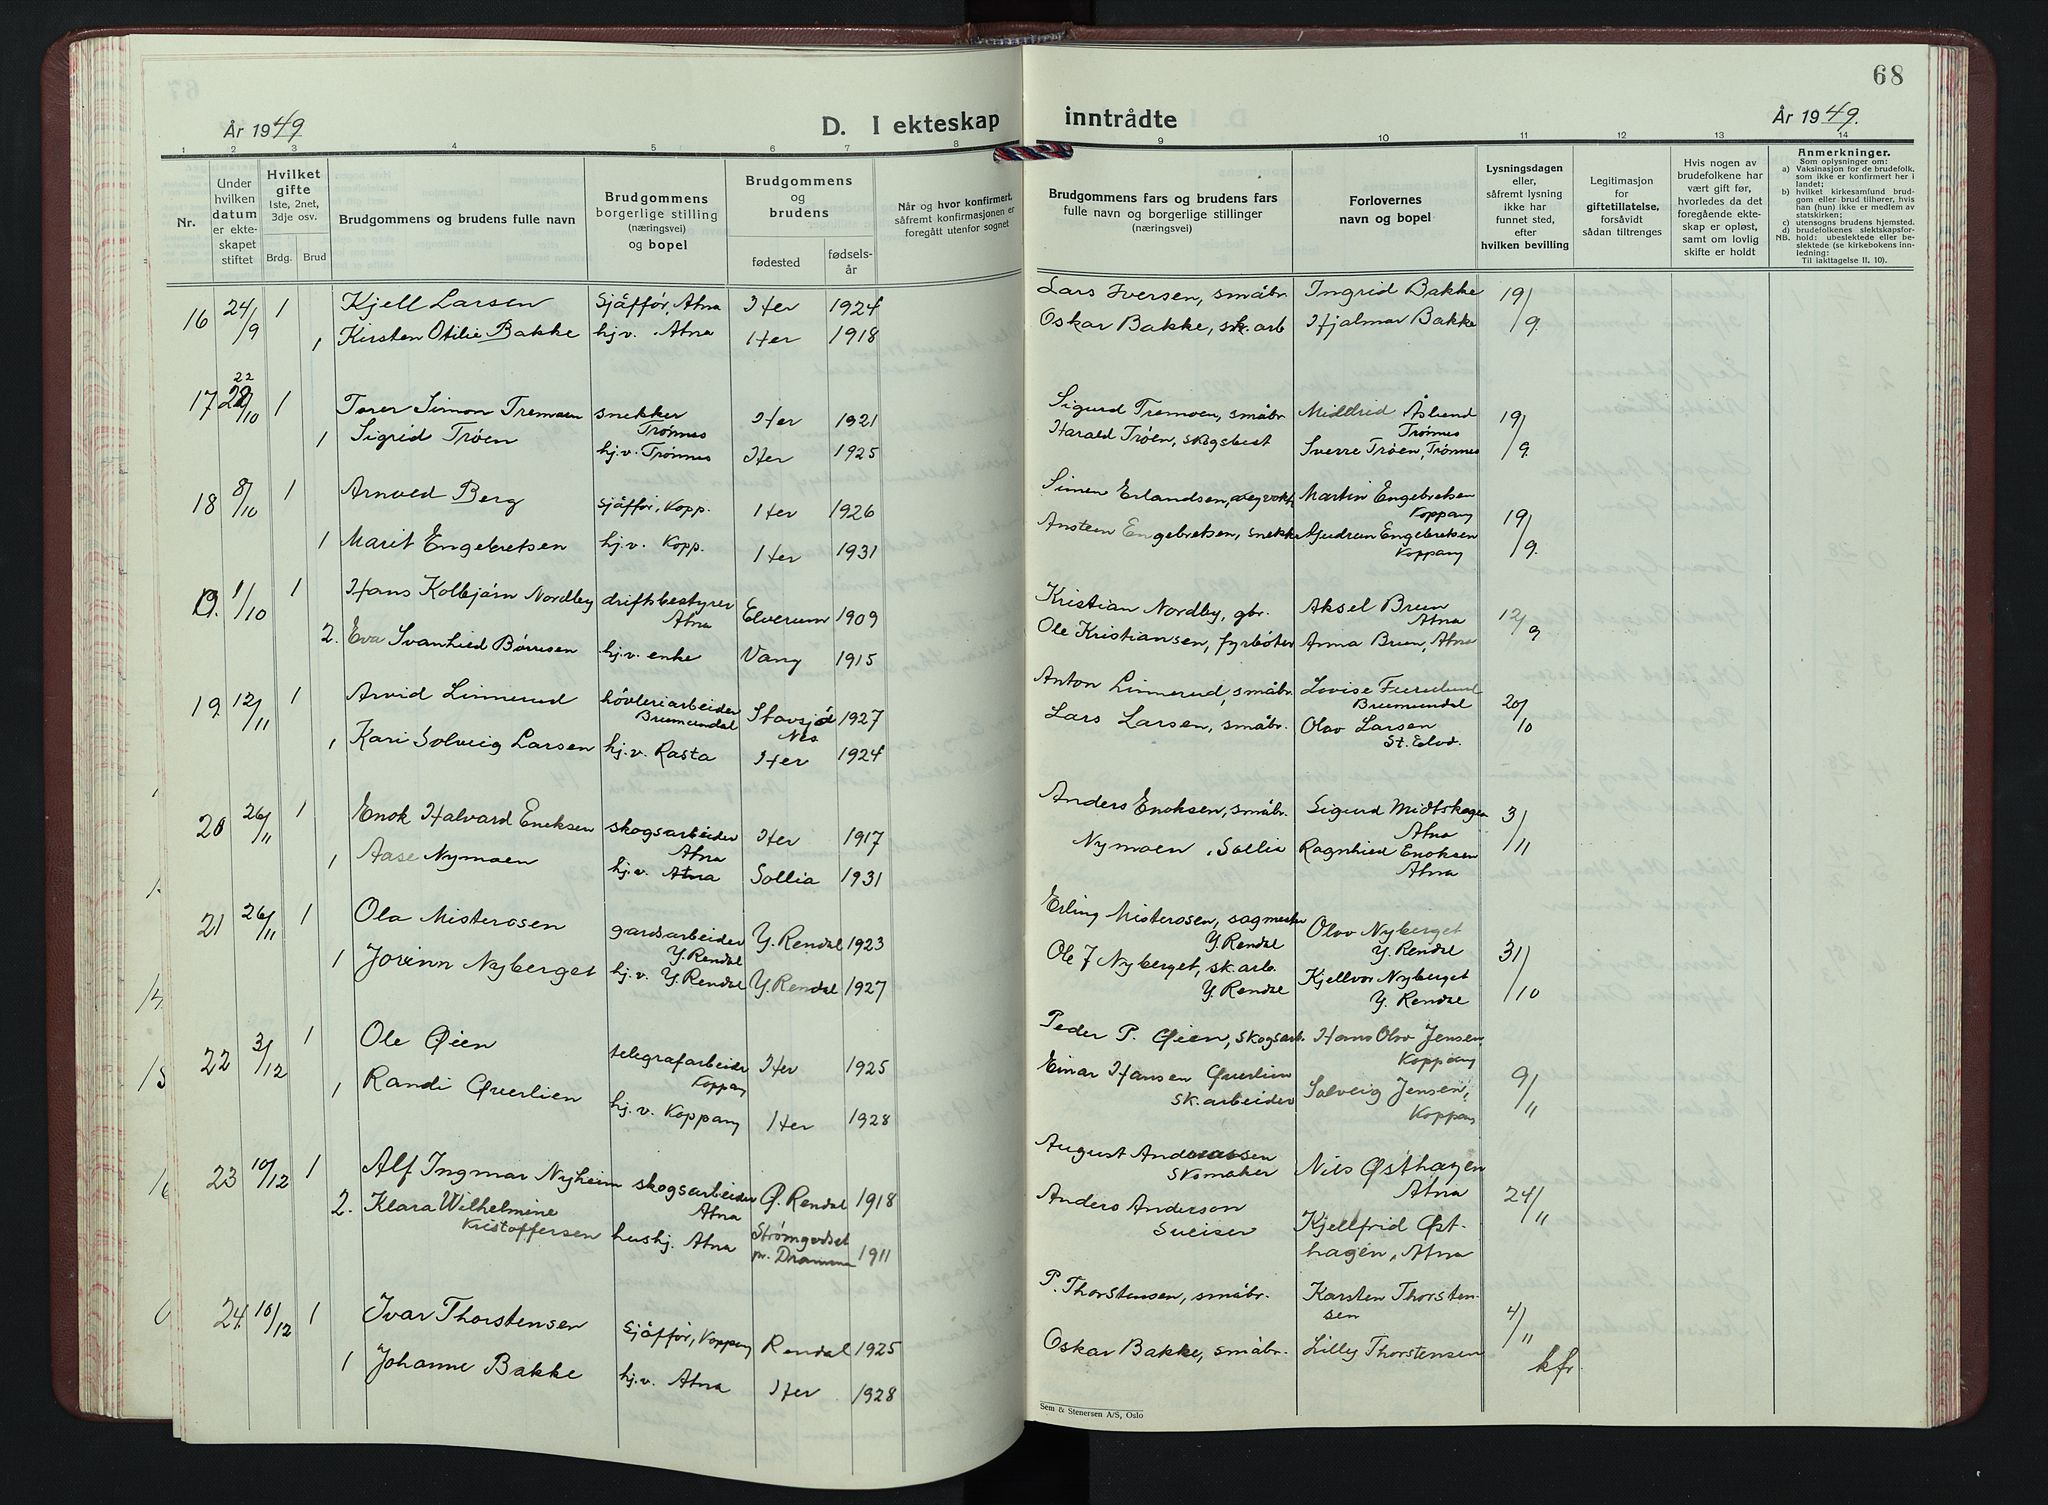 68
År 1949
D. I ekteskap inntrådte
År 1949.
1 2 3 4 5 6 7 8 9 10 11 12 13 14
Nr.
Under hvilken datum er ekteskapet stiftet
Hvilket gifte 1ste, 2net, 3dje osv.
Brdg. Brud
Brudgommens og brudens fulle navn
Brudgommens borgerlige stilling (næringsvei) og bopel
Brudgommens og brudens
fødested
fødselsår
Når og hvor konfirmert, såfremt konfirmasjonen er foregått utenfor sognet
Brudgommens fars og brudens fars fulle navn og borgerlige stillinger (næringsvei)
Forlovernes navn og bopel
Lysningsdagen eller, såfremt lysning ikke har funnet sted, efter hvilken bevilling
Legitimasjon for giftetillatelse, forsåvidt sådan tiltrenges
Hvis nogen av brudefolkene har vært gift før, hvorledes da det foregående ekteskap er opløst, samt om lovlig skifte er holdt
Anmerkninger.
Som oplysninger om:
a) Vaksinasjon for de brudefolk. som ikke er konfirmert her i landet;
b) hvilket kirkesamfund brudgom eller brud tilhører, hvis han (hun) ikke er medlem av statskirken;
c) utensogns brudens hjemsted.
d) brudefolkenes slektskapsforhold: ubeslektede eller beslektede (se kirkebokens innledning:
NB. Til iakttagelse II, 10).
16 24/9 1 Kjell Larsen sjåfför, Atna Her 1924 Lars Iversen, småbr. Ingrid Bakke 19/9.
1 Kirsten Otilie Bakke hj.v. Atna Her 1918 Oskar Bakke, sk. arb Hjalmar Bakke
17 22/10 1 Torer Simon Tremoen snekker Trønnes Her 1921 Sigurd Tremoen, småbr. Middrid Åslund Trønnes 19/9.
1 Sigrid Trøen hj.v. Trønnes Her 1925 Harald Trøen, skogsbest Sverre Trøen, Trønnes
18 8/10 1 Arnved Berg sjåffør, Kopp. Her 1926 Simen Erlandsen, vegvokt. Martin Engebretsen Koppang 19/9.
1 Marit Engebretsen hj.v. Kopp. Her 1931 Ansteen Engebretsen, snekke Gudrun Engebretsen Koppang
19. 1/10 1 Hans Kolbjørn Nordby driftsbestyrer Atna Elverum 1909 Kristian Nordby, gbr. Aksel Brun Atna 12/9
2. Eva Svanhied Børresen hj.v. enke Vang 1915 Ole Kristiansen, fyrbøter Anna Brun, Atna
19. 12/11 1 Arvid Linnerud høvleriarbeider Brumundal Stavsjø Nes 1927 Anton Linnerud, småbr. Lovise Furulund Brumundal 20/10
1 Kari Solveig Larsen hj.v. Rasta Her 1924 Lars Larsen, småbr. Olav Larsen St. Elvd.
20 26/11 1 Enok Halvard Enoksen skogsarbeider Atna Her 1917 Anders Enoksen, småbr. Sigurd Midtskogen Atna 3/11
1 Aase Nymoen hj.v. Atna Sollia 1931 Nymoen, Sollia Ragnhied Enoksen Atna
21 26/11 1 Ola Misterosen gardsarbeider Y. Rendal Y. Rendal 1923 Erling Misterosen, sagmester Y. Rendal Olav Nyberget Y. Rendal 31/10
1 Jorunn Nyberget hj.v. Y. Rendal Y. Rendal 1927 Ole J Nyberget, sk. arb. Y. Rendal Kjellvor Nyberget Y. Rendal
22 3/12 1 Ole Øien telegrafarbeider Koppang Her 1925 Peder P. Øien, skogsarb. Hans Olav Jensen Koppang 9/11
1 Randi Qverlien hj.v. Koppang Her 1928 Einar Hansen Qverlien sk. arbeider Solveig Jensen, Koppang
23 10/12 1 Alf Ingmar Nyheim skogsarbeider Atna Ø. Rendal 1918 August Andreassen Skomaker Nils Østhagen Atna 24/11
2. Klara Wilhelmine Kristoffersen hushj. Atna Strømgodset pr. Drammen 1911 Anders Anderson Sveiser Kjellfrid Østhagen, Atna
24. 10/12 1 Ivar Thorstensen sjåffør, Koppang Rendal 1925 P. Thorstensen, småbr. Karsten Thorstensen 4/11
1 Johanne Bakke hj.v. Atna Her 1928 Oskar Bakke, småbr. Lilly Thorstensen kfr.
Sem & Stenersen A/S, Oslo